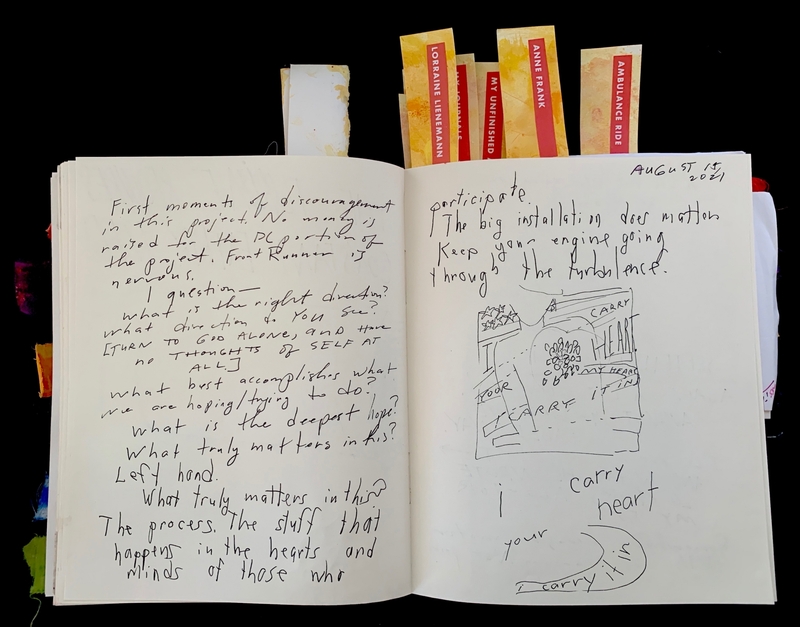 LORRAINE LIENEMANN
MY JOURNALS
MY UNFINISHED
ANNE FRANK
AMBULANCE RIDE
First moments of discouragement
in this project. No money is
raised for the DC portion of
the project. Front Runner is
nervous.
I question—
what is the right direction?
what direction do YOU see?
[TURN TO GOD ALONE, AND HAVE
NO THOUGHTS OF SELF AT
ALL]
what best accomplishes what
we are hoping/trying to do?
what is the deepest hope?
What truly matters in this?
Left hand.
What truly matters in this?
The process. The stuff that
happens in the hearts and
minds of those who
AUGUST 15
2021
participate.
The big installation does matter
Keep your engine going
through the turbulence.
I CARRY
HEART
YOUR
MY HEART
I CARRY IT IN
i carry
heart
your
i carry it in